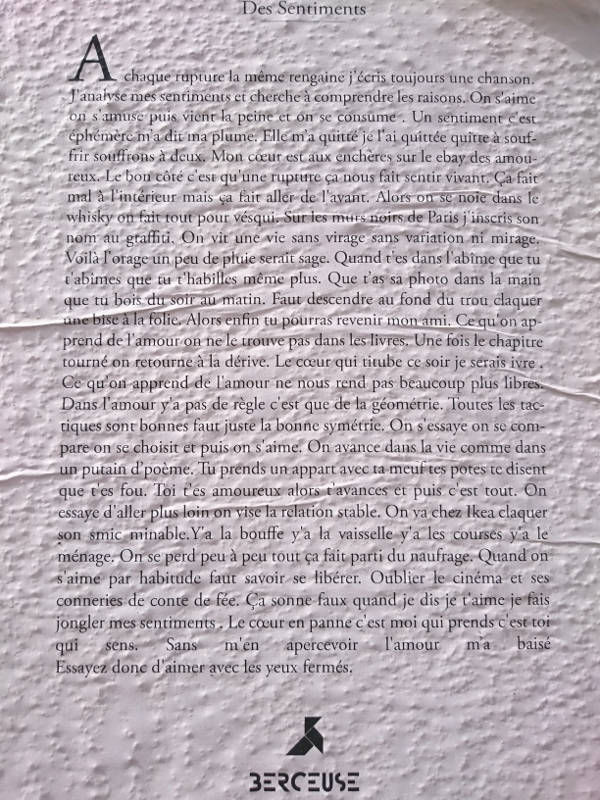 Des Sentiments
A chaque rupture la même rengaine j'écris toujours une chanson.
J'analyse mes sentiments et cherche à comprendre les raisons. On s'aime
on s'amuse puis vient la peine et on se consume . Un sentiment c'est
éphémère m'a dit ma plume. Elle m'a quitté je l'ai quittée quitte à souf-
frir souffrons à deux. Mon cœur est aux enchères sur le ebay des amou-
reux. Le bon côté c'est qu'une rupture ça nous fait sentir vivant. Ça fait
mal à l'intérieur mais ça fait aller de l'avant. Alors on se noie dans le
whisky on fait tout pour vésqui. Sur les murs noirs de Paris j'inscris son
nom au graffiti. On vit une vie sans virage sans variation ni mirage.
Voilà l'orage un peu de pluie serait sage. Quand t'es dans l'abîme que tu
t'abîmes que tu t'habilles même plus. Que t'as sa photo dans la main
que tu bois du soir au matin. Faut descendre au fond du trou claquer
une bise à la folie. Alors enfin tu pourras revenir mon ami. Ce qu'on ap-
prend de l'amour on ne le trouve pas dans les livres. Une fois le chapitre
tourné on retourne à la dérive. Le cœur qui titube ce soir je serais ivre .
Ce qu'on apprend de l'amour ne nous rend pas beaucoup plus libres.
Dans l'amour y'a pas de règle c'est que de la géométrie. Toutes les tac-
tiques sont bonnes faut juste la bonne symétrie. On s'essaye on se com-
pare on se choisit et puis on s'aime. On avance dans la vie comme dans
un putain d'poème. Tu prends un appart avec ta meuf tes potes te disent
que t'es fou. Toi t'es amoureux alors t'avances et puis c'est tout. On
essaye d'aller plus loin on vise la relation stable. On va chez Ikea claquer
son smic minable.Y'a la bouffe y'a la vaisselle y'a les courses y'a le
ménage. On se perd peu à peu tout ça fait parti du naufrage. Quand on
s'aime par habitude faut savoir se libérer. Oublier le cinéma et ses
conneries de conte de fée. Ça sonne faux quand je dis je t'aime je fais
jongler mes sentiments . Le cœur en panne c'est moi qui prends c'est toi
qui sens. Sans m'en apercevoir l'amour m'a baisé
Essayez donc d'aimer avec les yeux fermés.
BERCEUSE